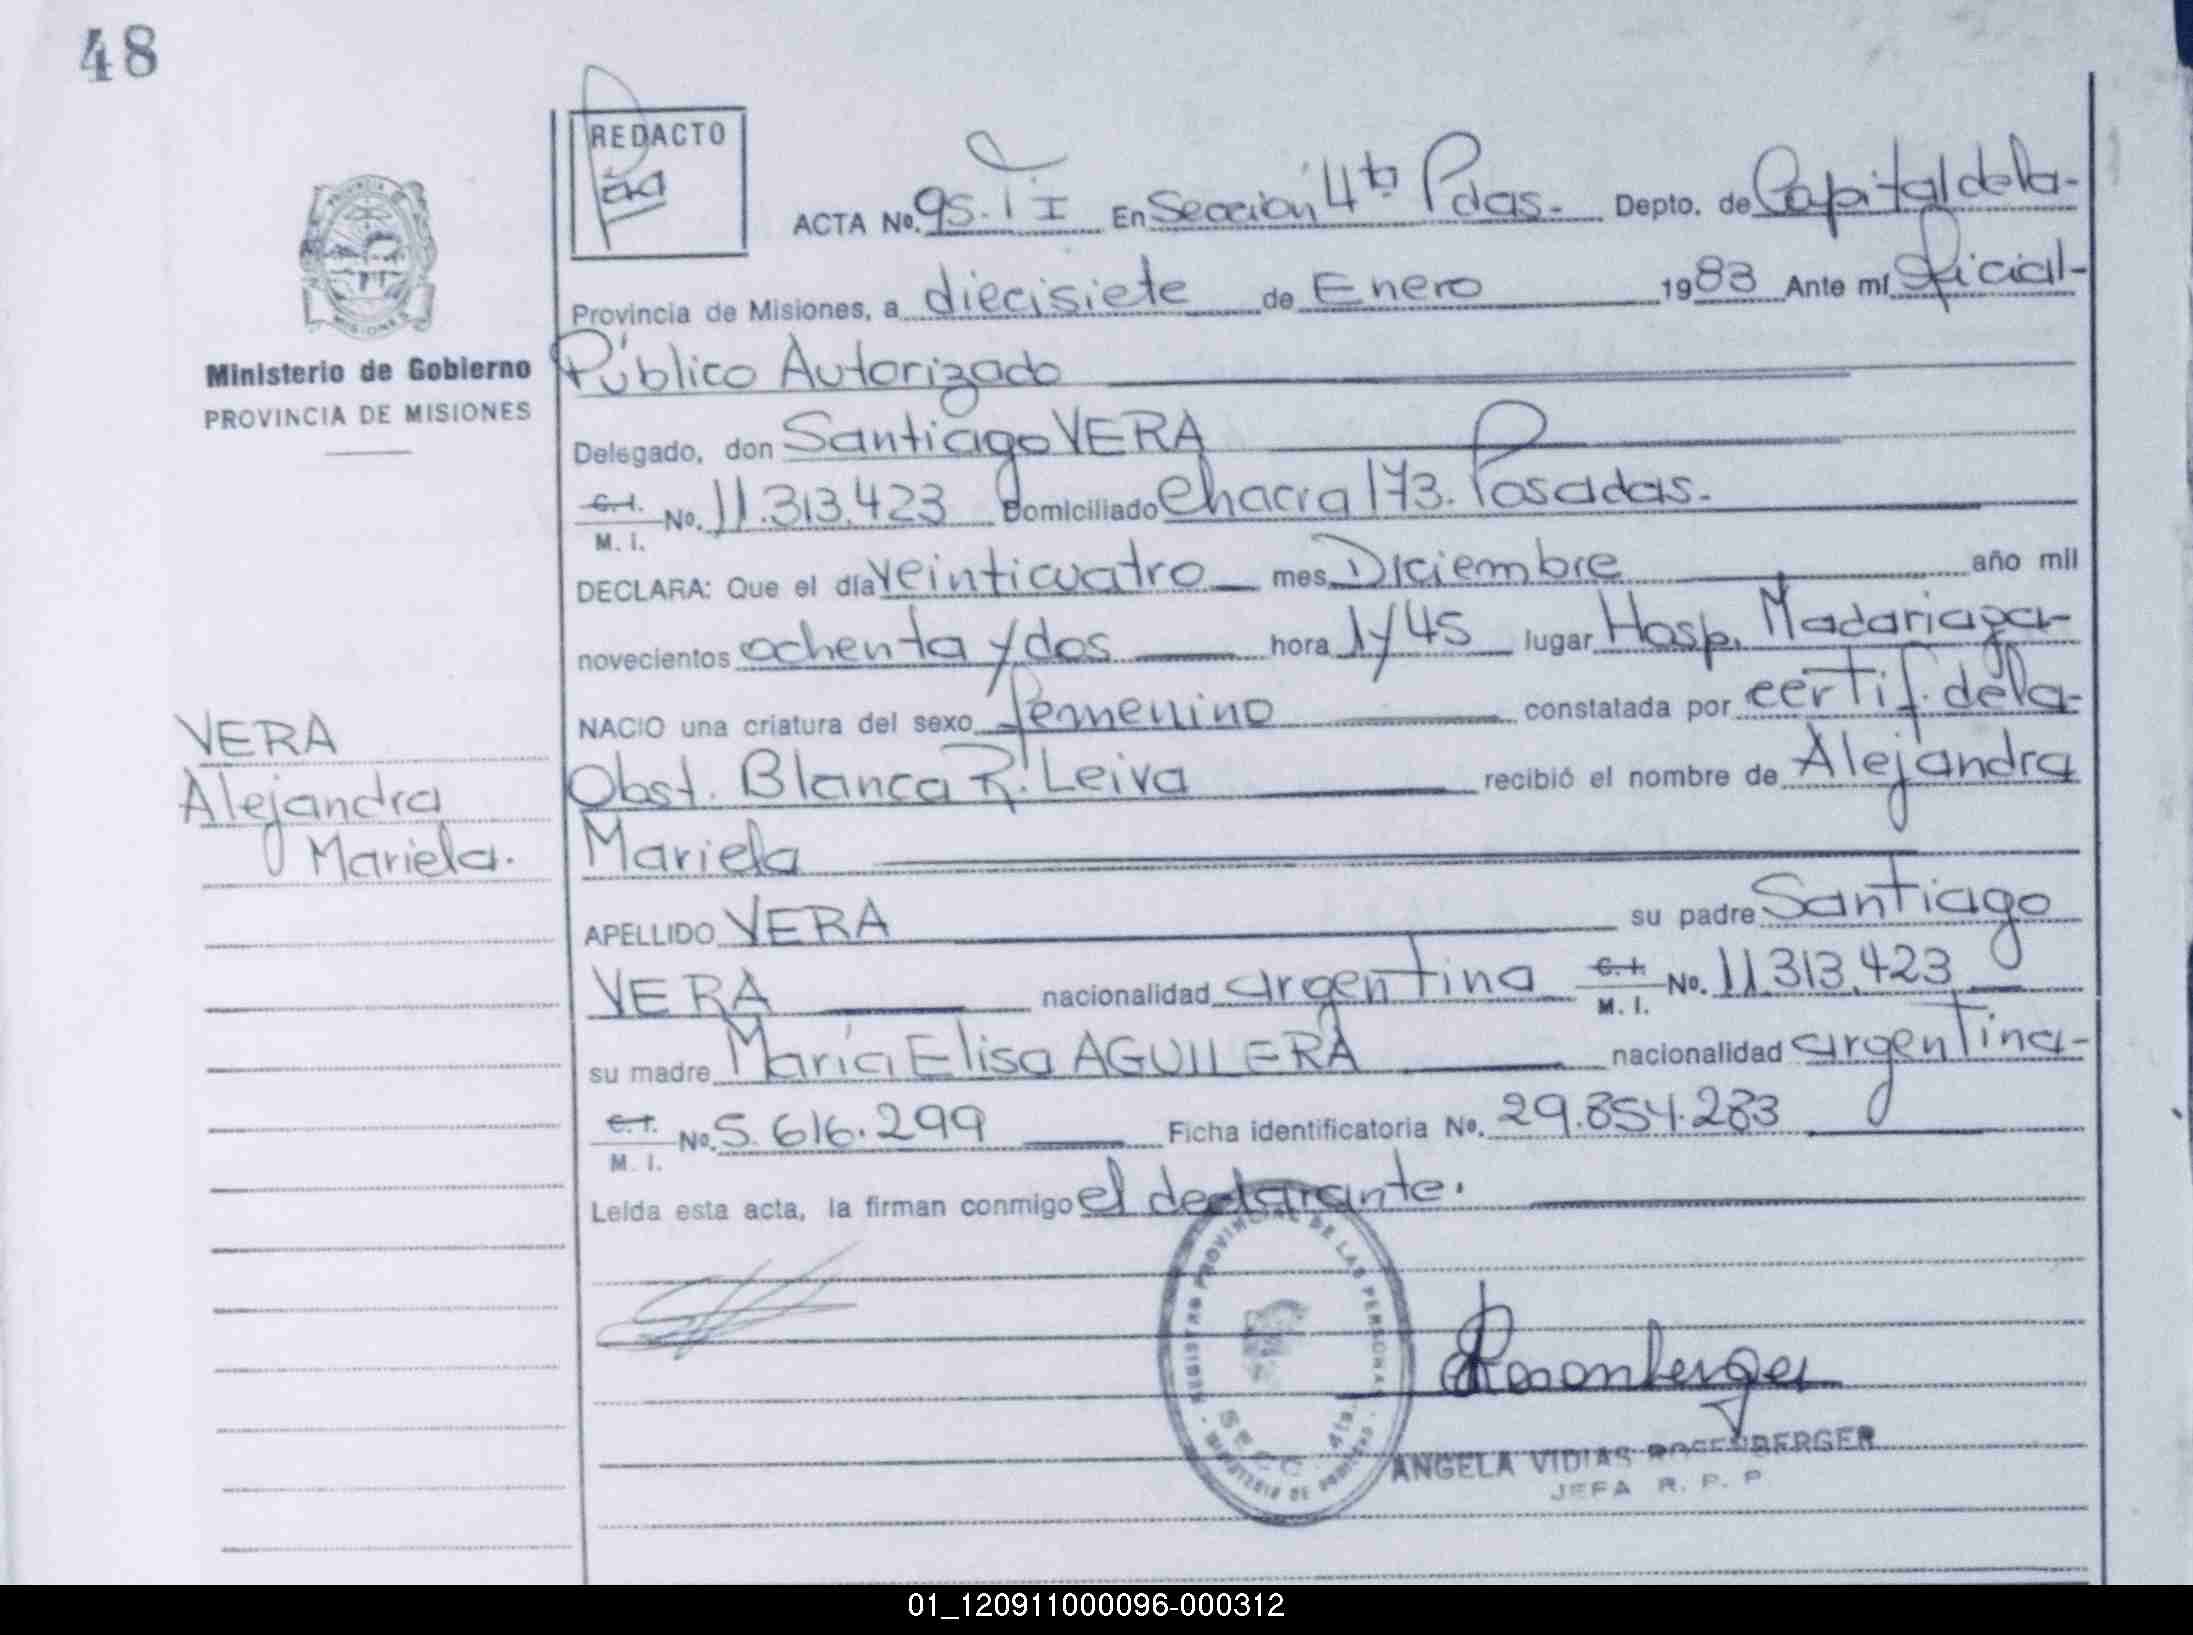 48
REDACTO
ACTA No. 95. T I En Sección 4ta Pdas. Depto. de Capital de la-
Provincia de Misiones, a diecisiete de Enero 1983 Ante mí Oficial-
Público Autorizado
Ministerio de Gobierno
PROVINCIA DE MISIONES
Delegado, don Santiago VERA
C.I. M. I. No. 11.313.423 Domiciliado Chacra 173. Posadas.
DECLARA: Que el día veinticuatro mes Diciembre año mil
novecientos ochenta y dos hora 1 y 45 lugar Hosp. Madariaga-
NACIO una criatura del sexo femenino constatada por certif. de la-
VERA
Alejandra
Mariela.
Obst. Blanca R. Leiva recibió el nombre de Alejandra
Mariela
APELLIDO VERA su padre Santiago
VERA nacionalidad argentina C.I. M. I. No. 11.313.423
su madre María Elisa AGUILERA nacionalidad argentina-
C.I. M. I. No. 5.616.299 Ficha identificatoria No. 29.854.283
Leída esta acta, la firman conmigo el declarante.
REGISTRO PROVINCIAL DE LAS PERSONAS
SECC 4ta.
Rosenberger
ANGELA VIDIAS ROSENBERGER
JEFA R. P. P
01_120911000096-000312